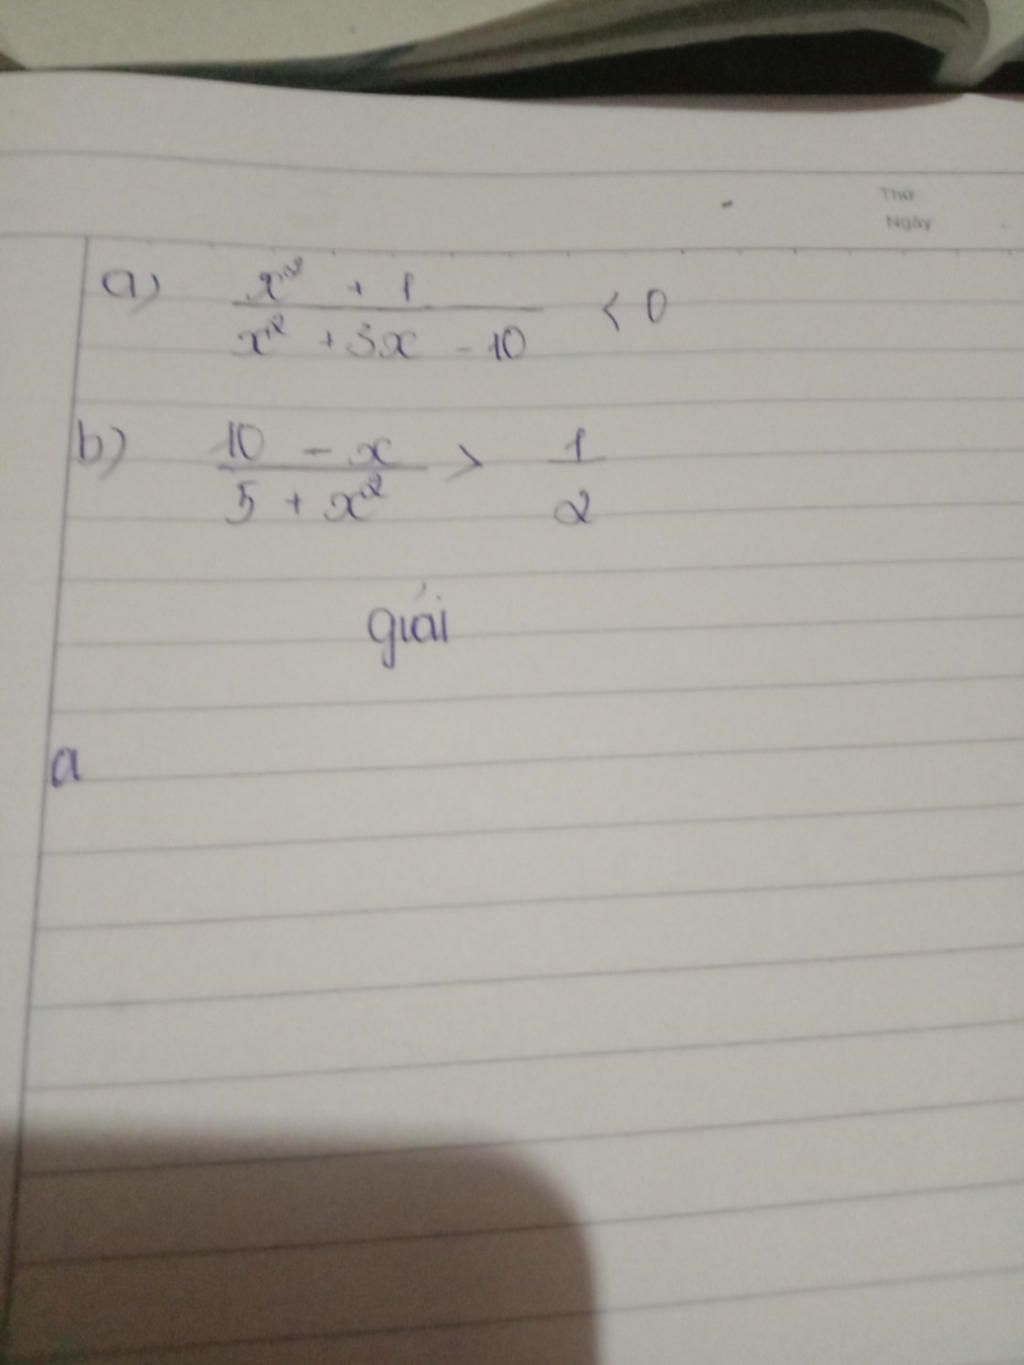 Thứ
Ngày
a) x² + 1 / x² + 3x - 10 < 0
b) 10 - x / 5 + x² > 1 / 2
giải
a